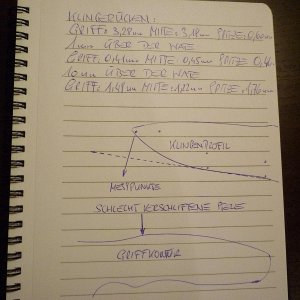 KLINGENRÜCKEN:
GRIFF: 3,28mm MITTE: 3,18mm SPITZE: 0,60mm
1mm ÜBER DER WATE
GRIFF: 0,41mm MITTE: 0,45mm SPITZE 0,46
10mm ÜBER DER WATE
GRIFF: 1,48mm MITTE: 1,22mm SPITZE: 1,76mm
KLINGENPROFIL
MESSPUNKTE
SCHLECHT VERSCHLIFFENE REHLE
GRIFFKONTUR